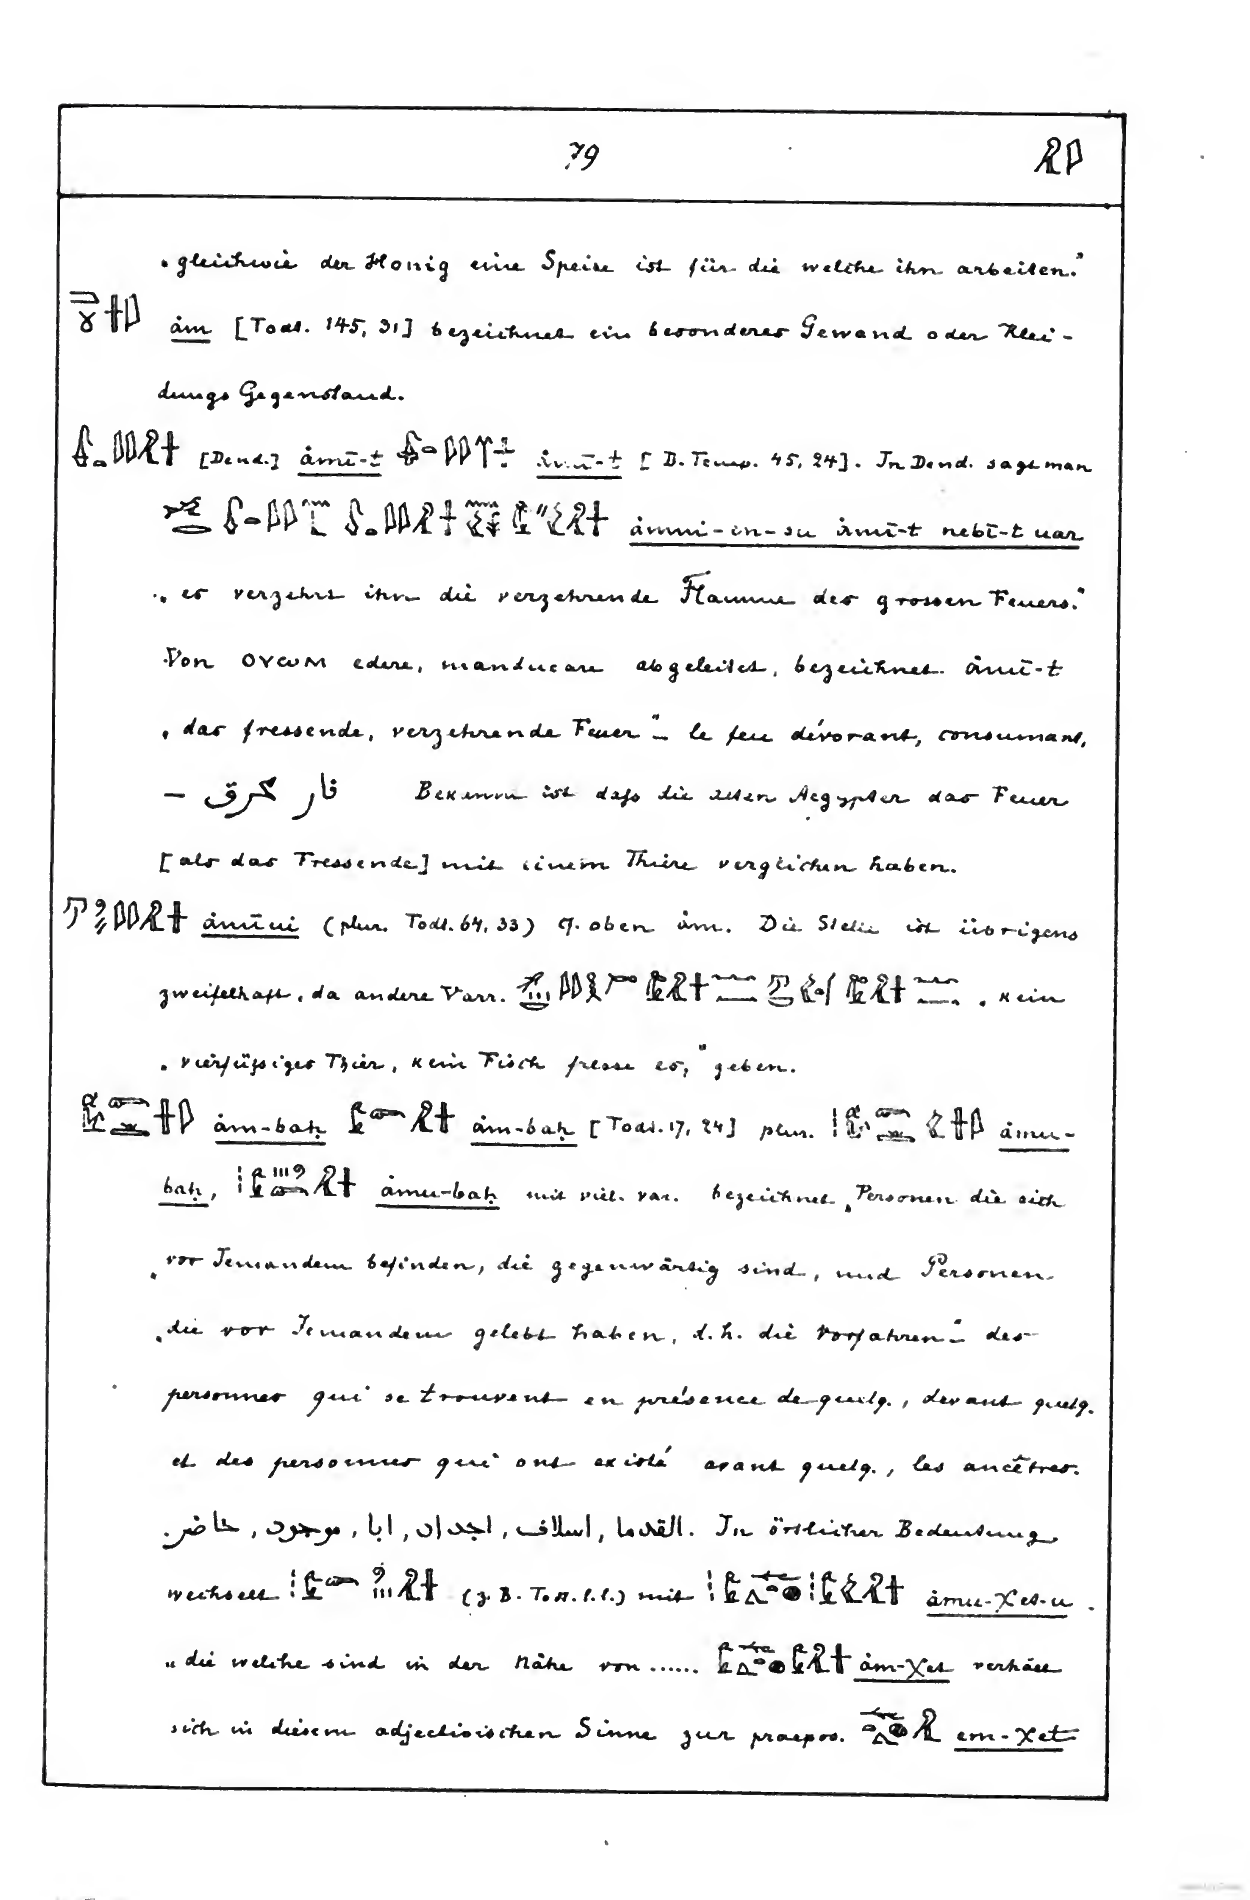 79
„gleichwie der Honig eine Speise ist für die welche ihn arbeiten.“
ȧm [Todt. 145, 31] bezeichnet ein besonderes Gewand oder Klei-
dungs Gegenstand.
[Dend.] ȧmī-t ȧmī-t [D. Temp. 45, 24]. In Dend. sagt man
ȧmmi-en-su ȧmī-t nebī-t uar
„es verzehrt ihn die verzehrende Flamme des grossen Feuers.“
Von ⲟⲩⲱⲙ edere, manducare abgeleitet, bezeichnet ȧmī-t
„das fressende, verzehrende Feuer“ – le feu dévorant, consumant,
– نار محرق Bekannt ist daſs die alten Aegypter das Feuer
[als das Fressende] mit einem Thiere verglichen haben.
ȧmīui (plur. Todt. 64, 33) cf. oben ȧm. Die Stelle ist übrigens
zweifelhaft, da andere Varr. „kein
„vierfüſsiges Thier, kein Fisch fresse es,“ geben.
ȧm-baḥ ȧm-baḥ [Todt. 17, 24] plur. ȧmu-
baḥ, ȧmu-baḥ mit viel. var. bezeichnet „Personen die sich
„vor Jemandem befinden, die gegenwärtig sind, und Personen
„die vor Jemandem gelebt haben, d.h. die Vorfahren“ – des
personnes qui se trouvent en présence de quelq., devant quelq.
et des personnes qui ont existé avant quelq., les ancêtres.
القدما, اسلاف, اجداد, ابا, موجود, حاضر. In örtlicher Bedeutung
wechselt (z. B. Todt. l.l.) mit ȧmu-χet-u
„die welche sind in der Nähe von ...... ȧm-χet verhält
sich in diesem adjectivischen Sinne zur praepos. em-χet